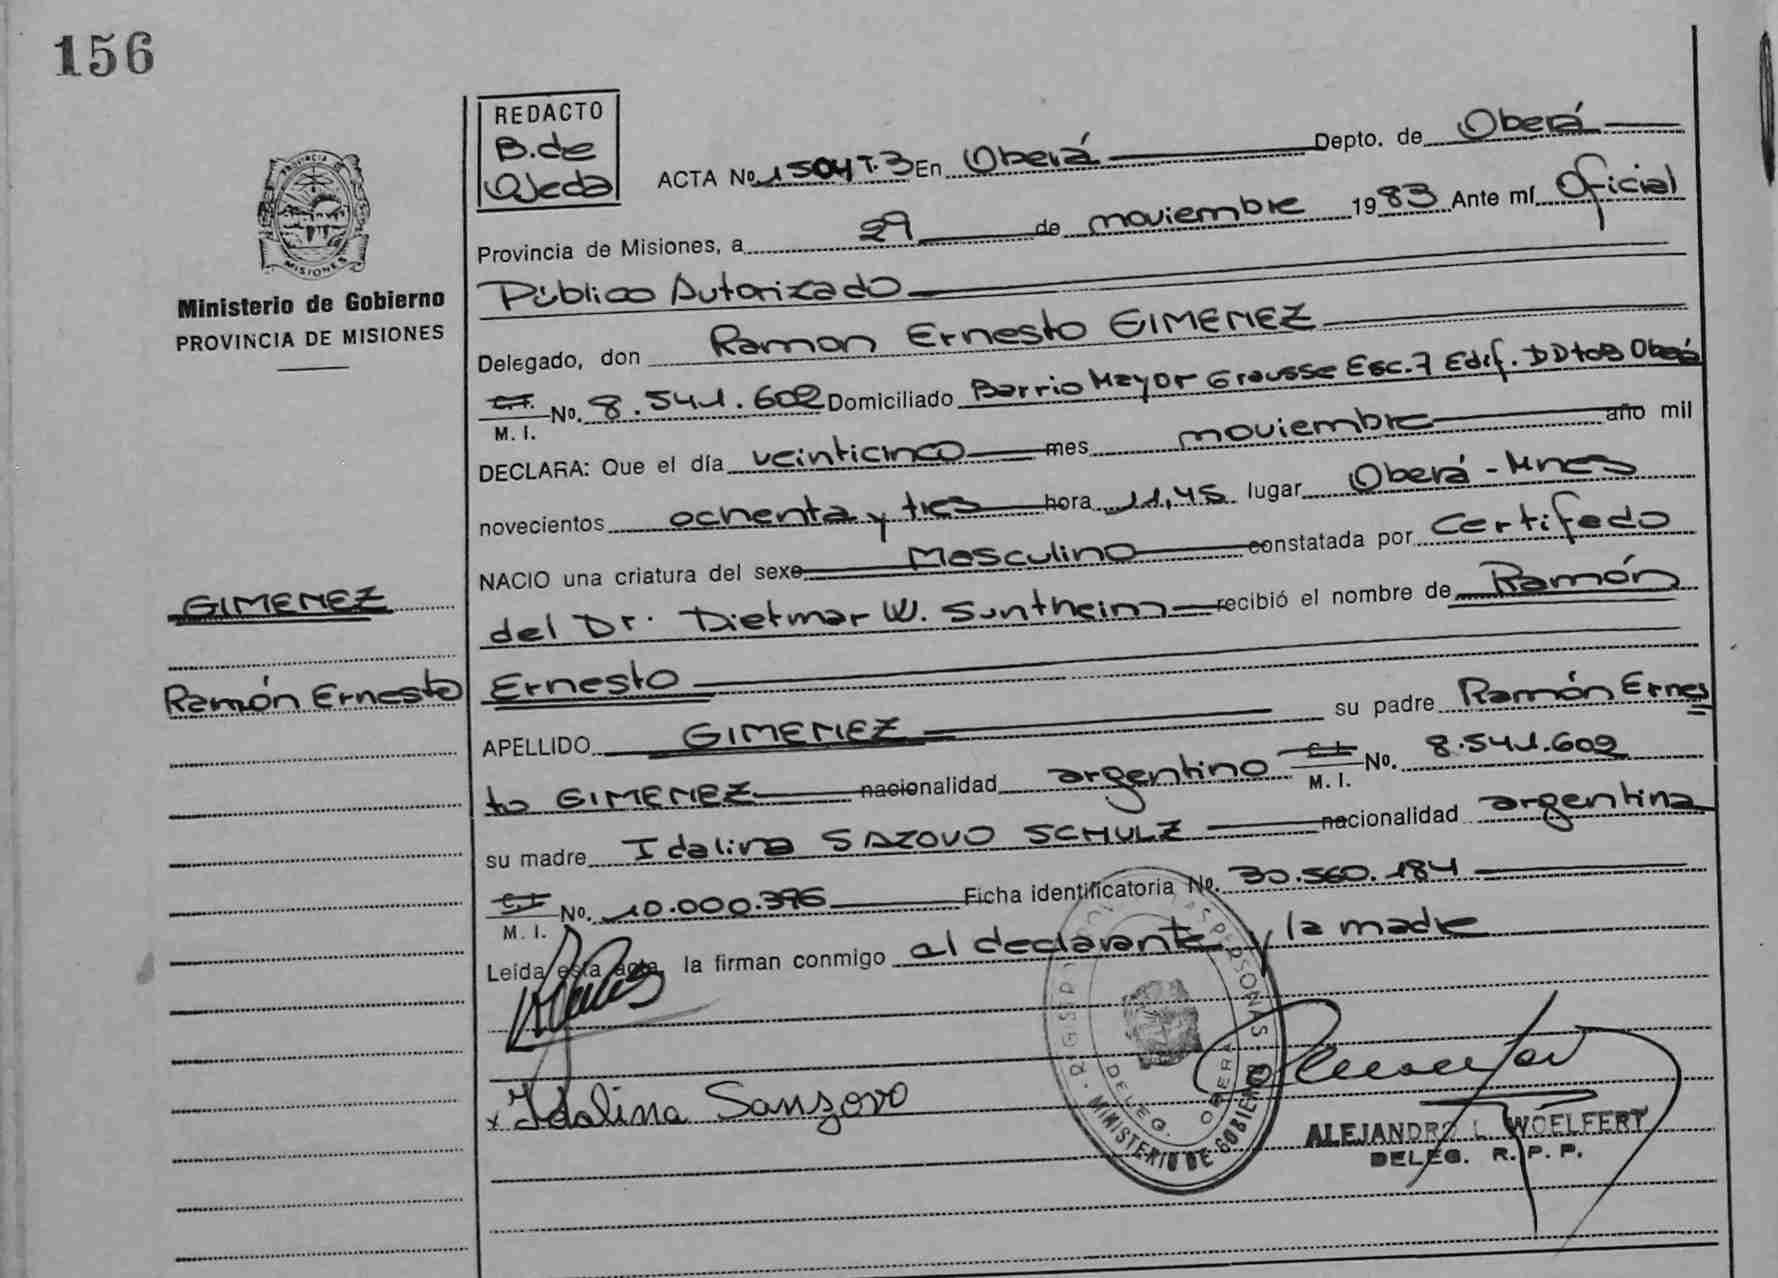 156
REDACTO
B. de
Ojeda
ACTA No. 1504 T.3 En Oberá Depto. de Oberá
Provincia de Misiones, a 29 de noviembre 1983 Ante mí Oficial
Público Autorizado
PROVINCIA
MISIONES
Ministerio de Gobierno
PROVINCIA DE MISIONES
Delegado, don Ramon Ernesto GIMENEZ
C.I. M. I. No. 8.541.602 Domiciliado Barrio Mayor Grousse Esc.7 Edif. D Dto B Oberá
DECLARA: Que el día veinticinco mes noviembre año mil
novecientos ochenta y tres hora 11,45 lugar Oberá - Mnes
NACIO una criatura del sexo Masculino constatada por Certifcado
del Dr. Dietmar W. Suntheim recibió el nombre de Ramón
Ernesto
GIMENEZ
Ramón Ernesto
APELLIDO GIMENEZ su padre Ramón Ernes
to GIMENEZ nacionalidad argentino C.I. M. I. No. 8.541.602
su madre Idalina SAZOVO SCHULZ nacionalidad argentina
C.I. M. I. No. 10.000.396 Ficha identificatoria No. 30.560.184
Leída esta acta, la firman conmigo al declarante y la madre
x Idalina Sanzovo
DELEG. OBERA
MINISTERIO DE GOBIERNO
ALEJANDRO L. WOELFERT
DELEG. R. P. P.